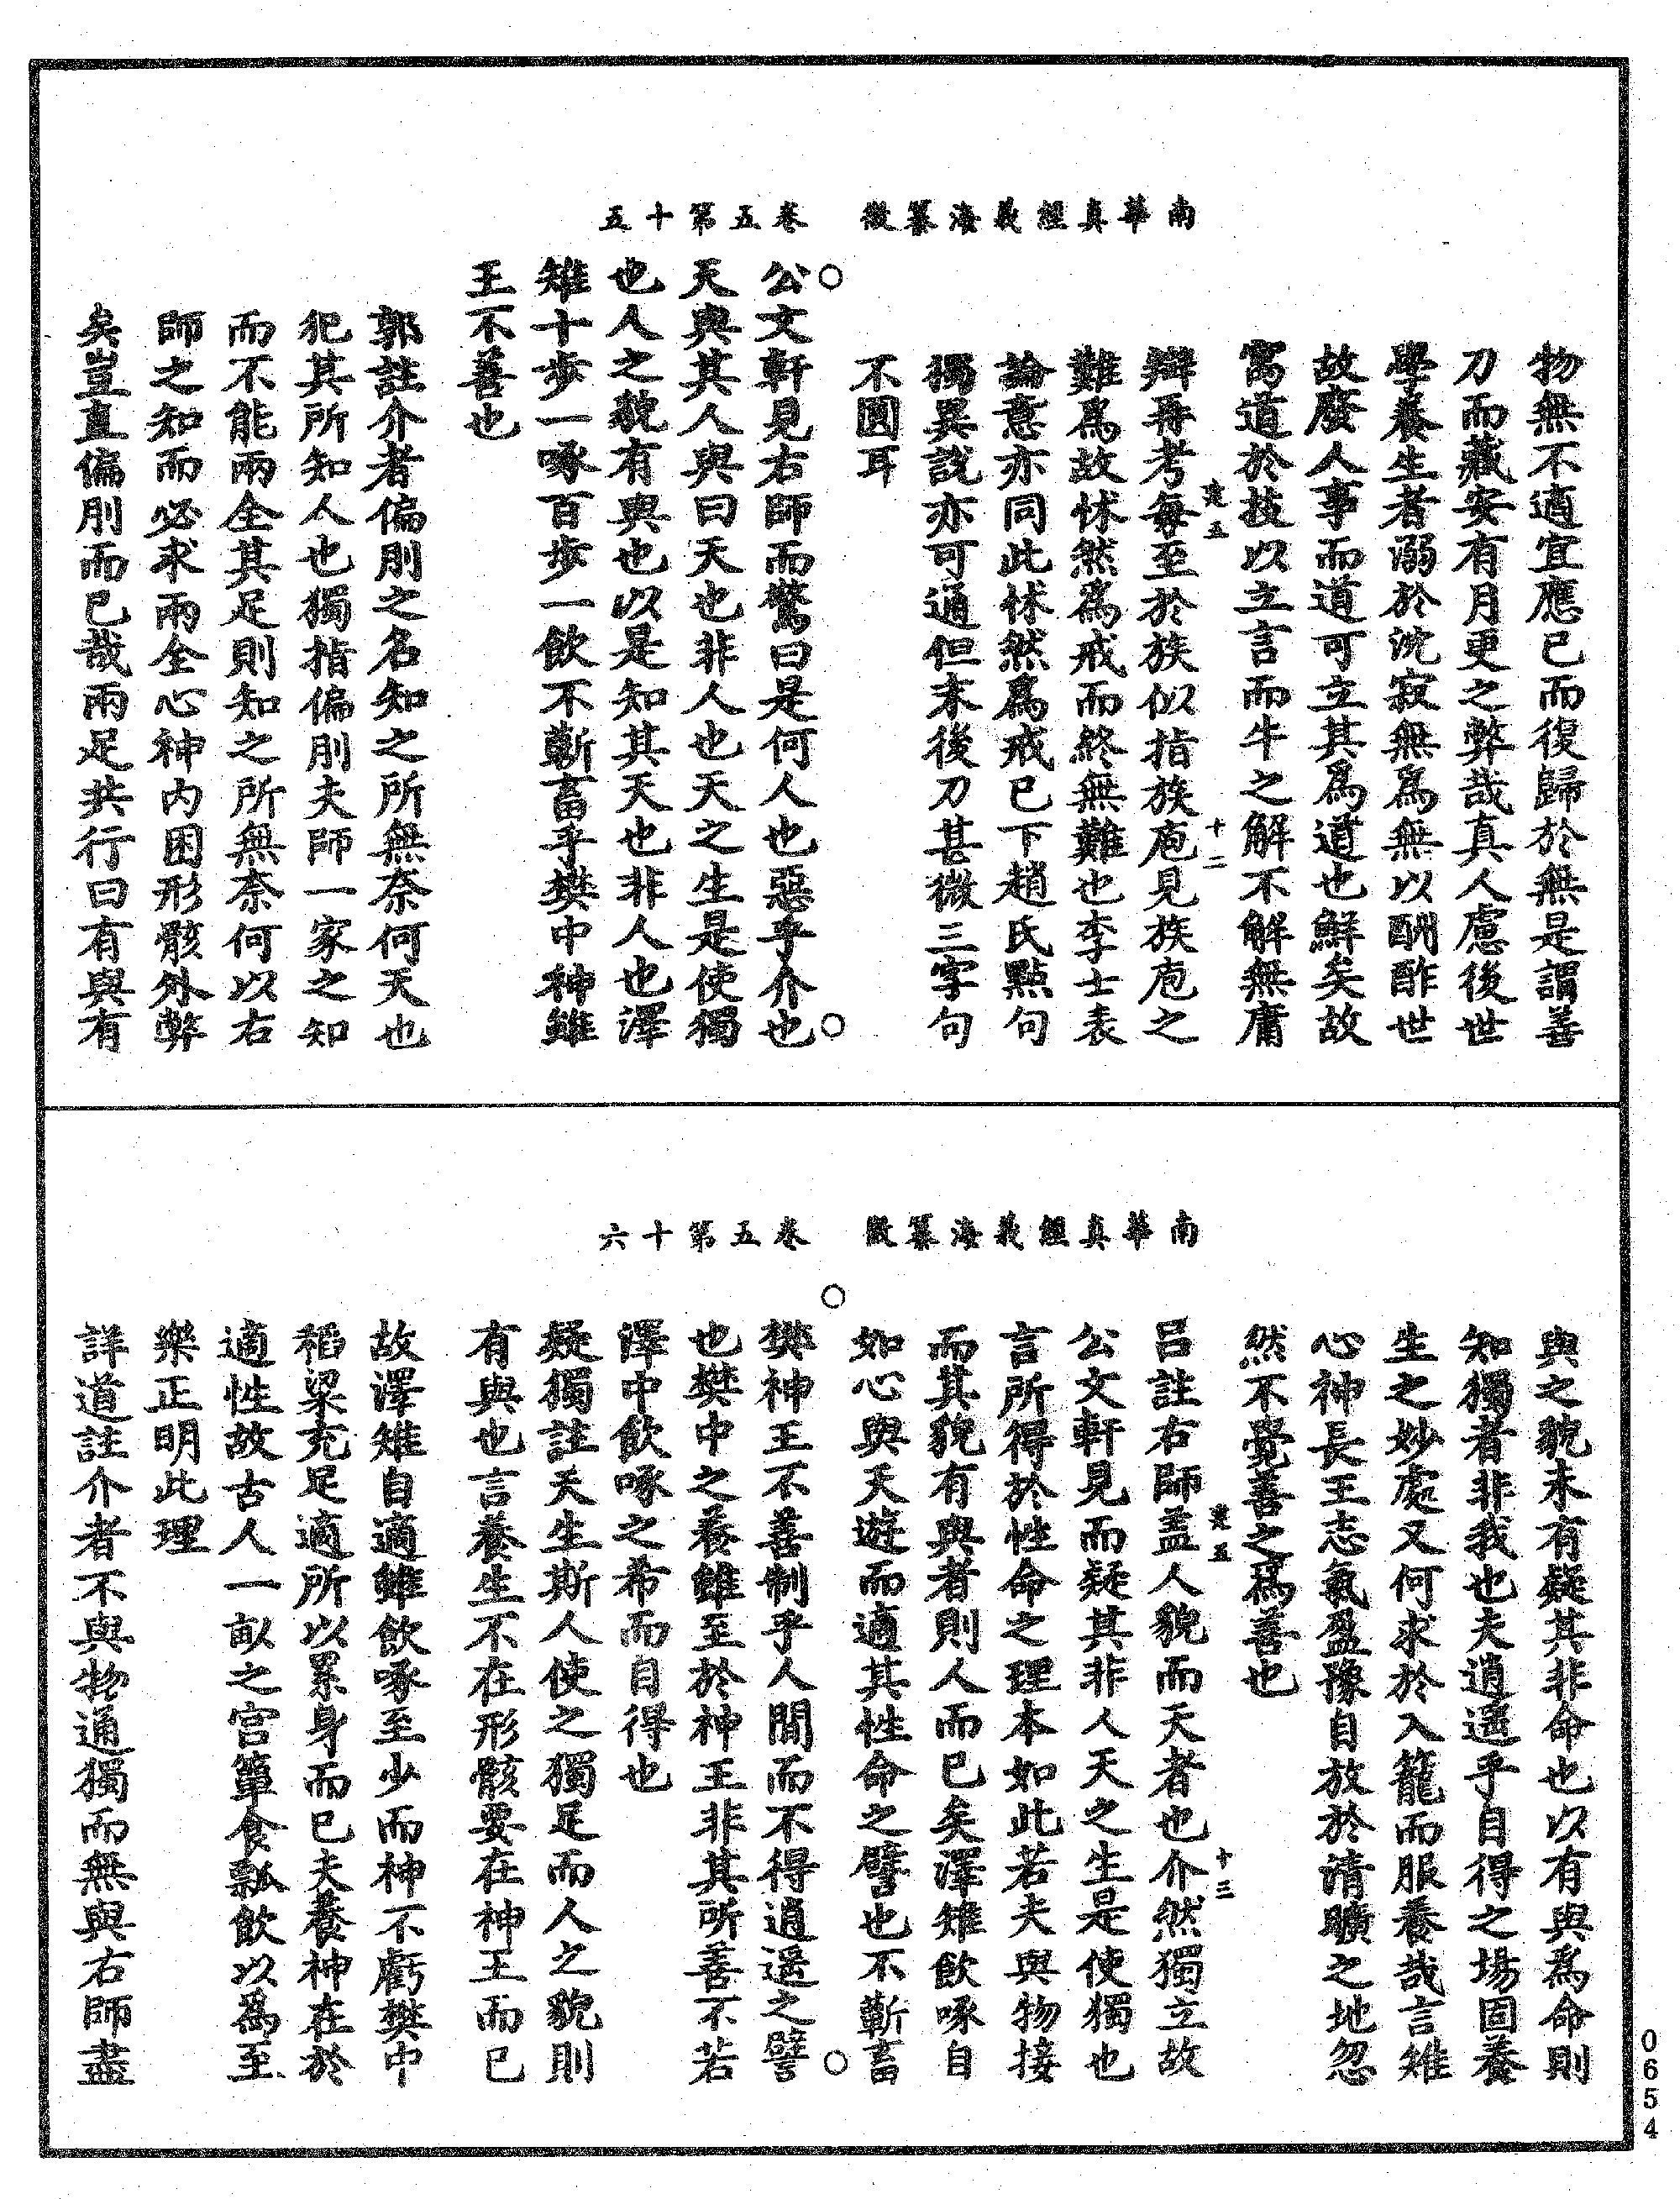 南華真經義海纂微　卷五第十五
物無不適宜應已而復歸於無是謂善
刀而藏安有月更之弊哉真人慮後世
學養生者溺於沈寂無為無以酬酢世
故廢人事而道可立其為道也鮮矣故
寓道於技以立言而牛之解不解無庸
辯再考每至於族似指族庖見族庖之
難為故怵然為戒而終無難也李士表
論意亦同此怵然為戒已下趙氏點句
獨異說亦可通但末後刀甚微三字句
不圓耳
公文軒見右師而驚曰是何人也惡乎介也
天與其人與曰天也非人也天之生是使獨
也人之貌有與也以是知其天也非人也澤
雉十步一啄百步一飲不蘄畜乎樊中神雖
王不善也
郭註介者偏刖之名知之所無奈何天也
犯其所知人也獨指偏刖夫師一家之知
而不能兩全其足則知之所無奈何以右
師之知而必求兩全心神內困形骸外弊
矣豈直偏刖而已哉兩足共行曰有與有
南華真經義海纂微　卷五第十六
與之貌未有疑其非命也以有與為命則
知獨者非我也夫逍遙乎自得之場固養
生之妙處又何求於入籠而服養哉言雉
心神長王志氣盈豫自放於清曠之地忽
然不覺善之為善也
呂註右師蓋人貌而天者也介然獨立故
公文軒見而疑其非人天之生是使獨也
言所得於性命之理本如此若夫與物接
而其貌有與者則人而已矣澤雉飲啄自
如心與天遊而適其性命之譬也不蘄畜
樊神王不善制乎人間而不得逍遙之譬
也樊中之養雖至於神王非其所善不若
澤中飲啄之希而自得也
疑獨註天生斯人使之獨足而人之貌則
有與也言養生不在形骸要在神王而已
故澤雉自適雖飲啄至少而神不虧樊中
稻粱充足適所以累身而已夫養神在於
適性故古人一畝之宮簞食瓢飲以為至
樂正明此理
詳道註介者不與物通獨而無與右師盡
十二
十三
0654